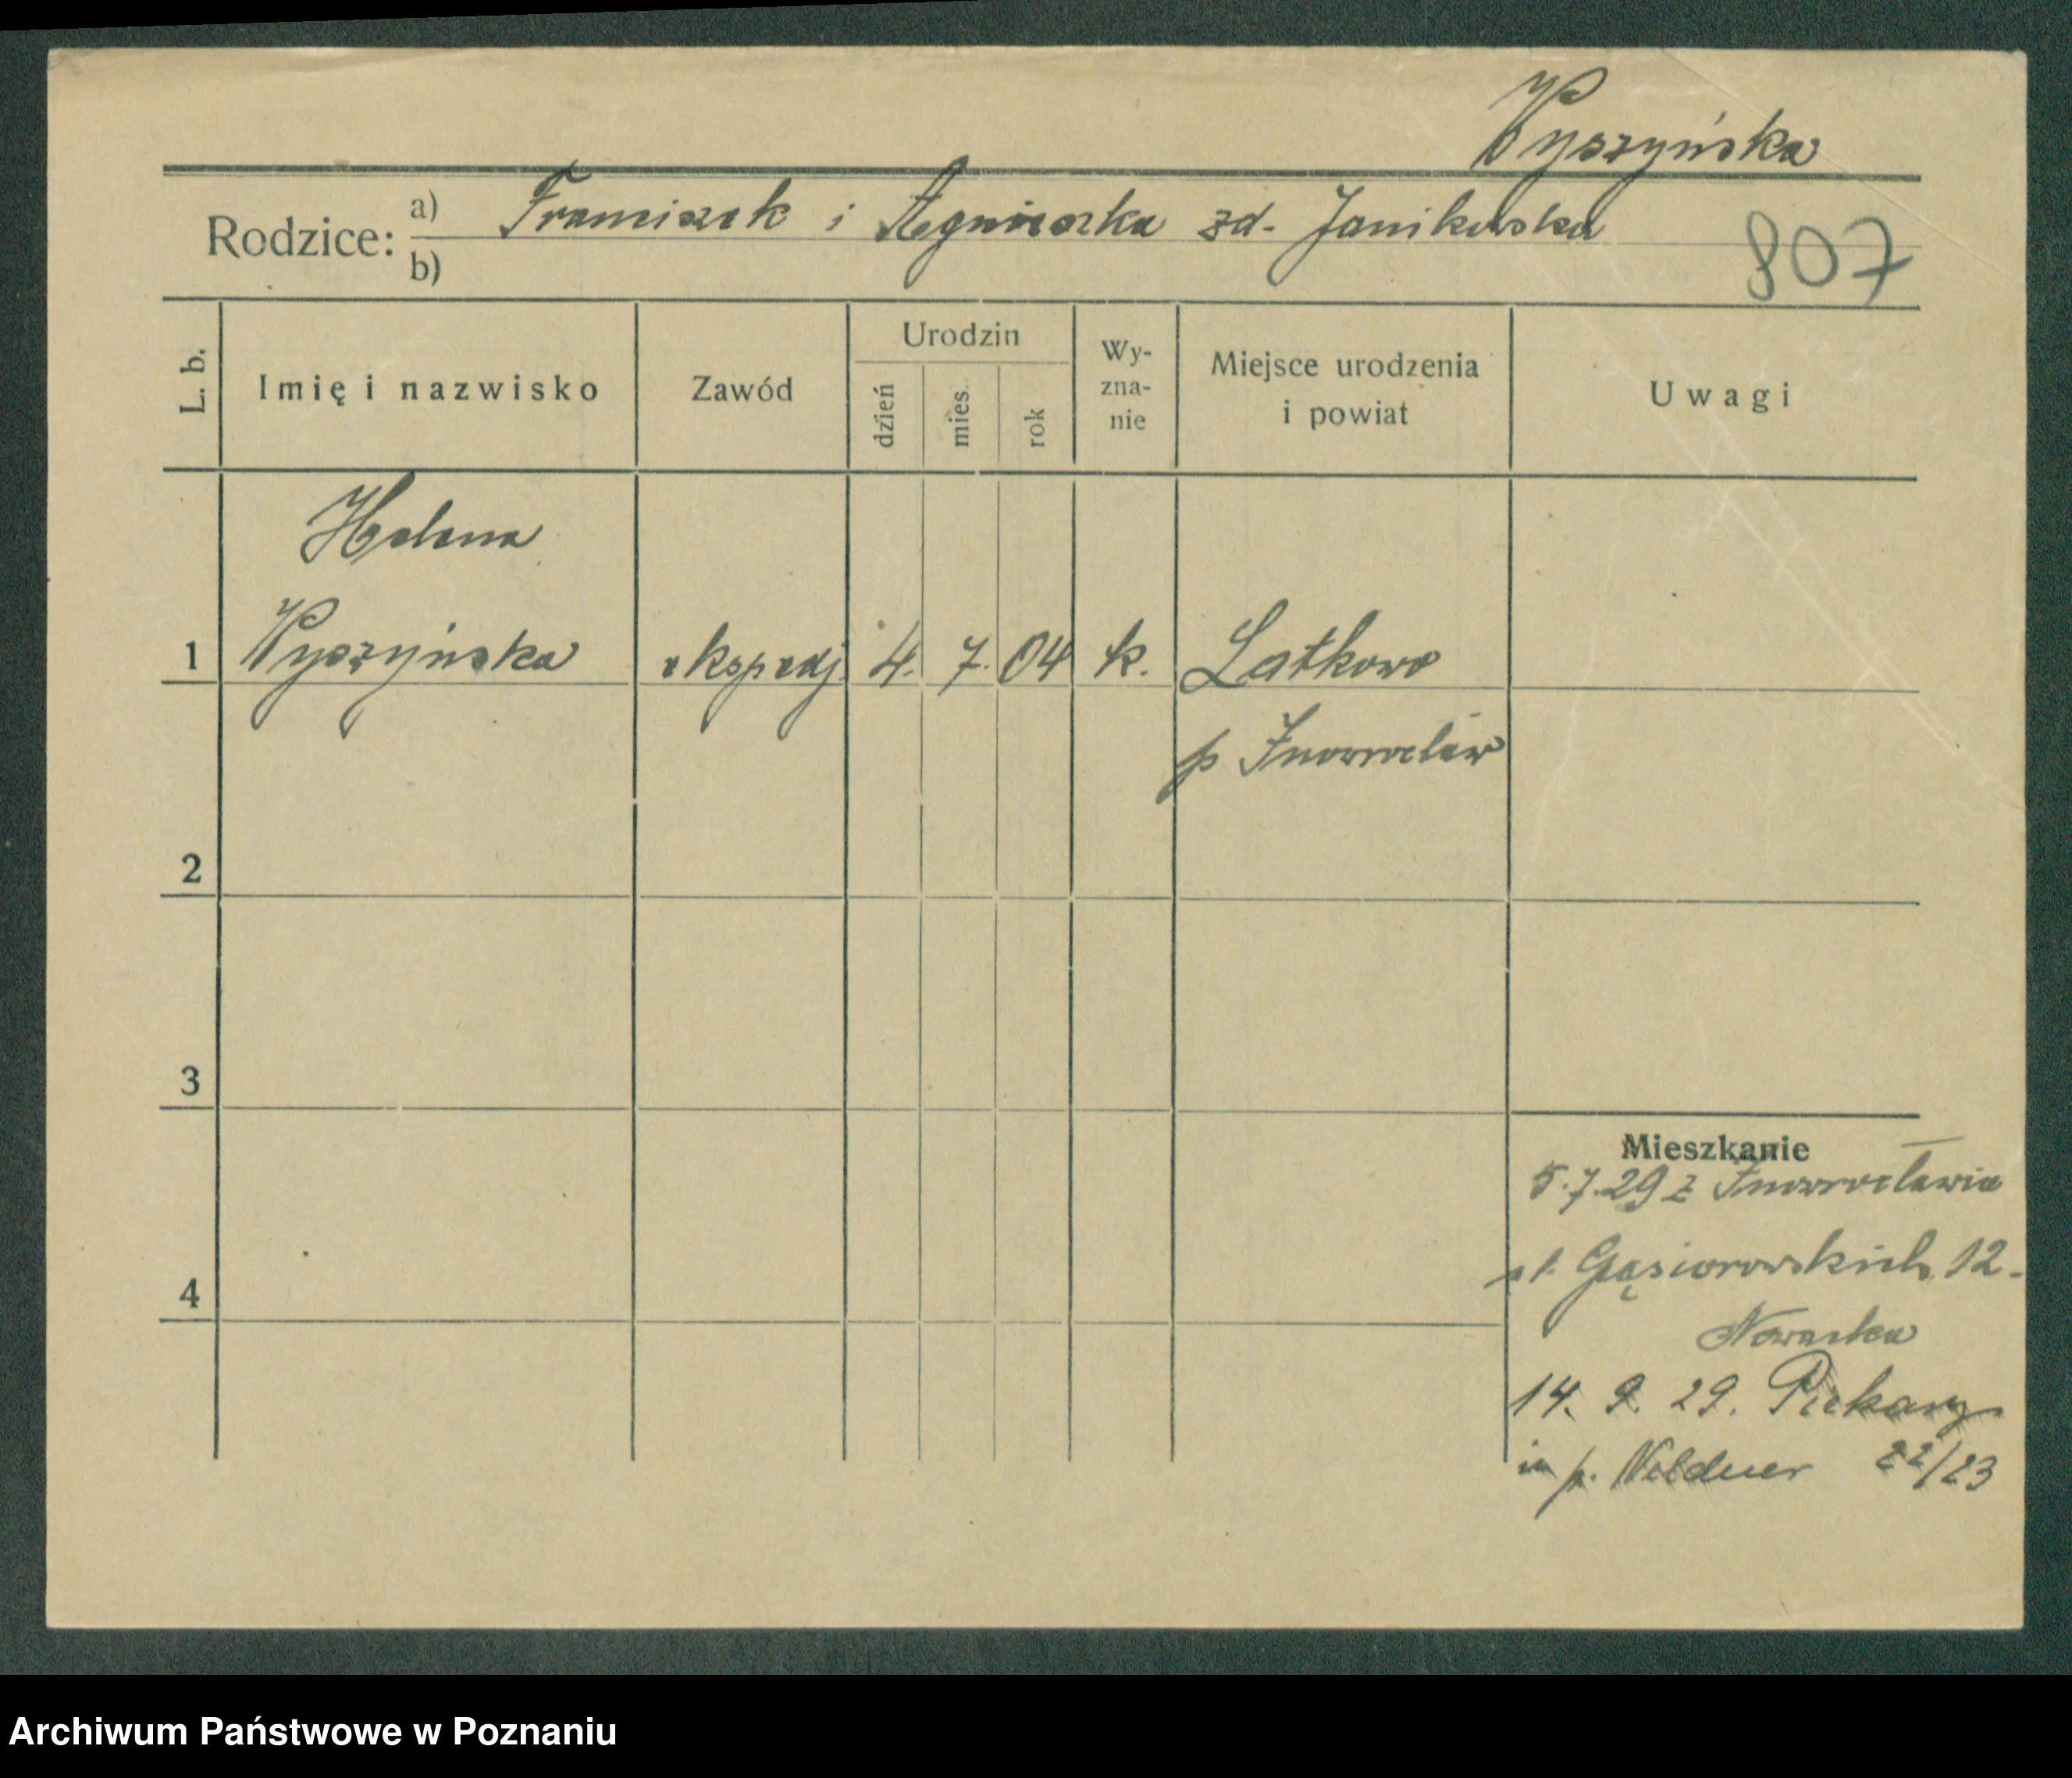 Wyszyńska
Rodzice: a) Franciszek i Agnieszka zd. Janikowska
b)
807
L. b.
Imię i nazwisko
Zawód
Urodzin
dzień
mies.
rok
Wy-
zna-
nie
Miejsce urodzenia
i powiat
Uwagi
Helena
1 Wyszyńska ekspedj. 4. 7. 04 k. Latkowo
p Inowrocław
2
3
4
Mieszkanie
5.7.29 z Inowrocławia
Gąsiorowskich 12.
Nowacka
14. 9. 29. Piekary
p. 22/23
Archiwum Państwowe w Poznaniu